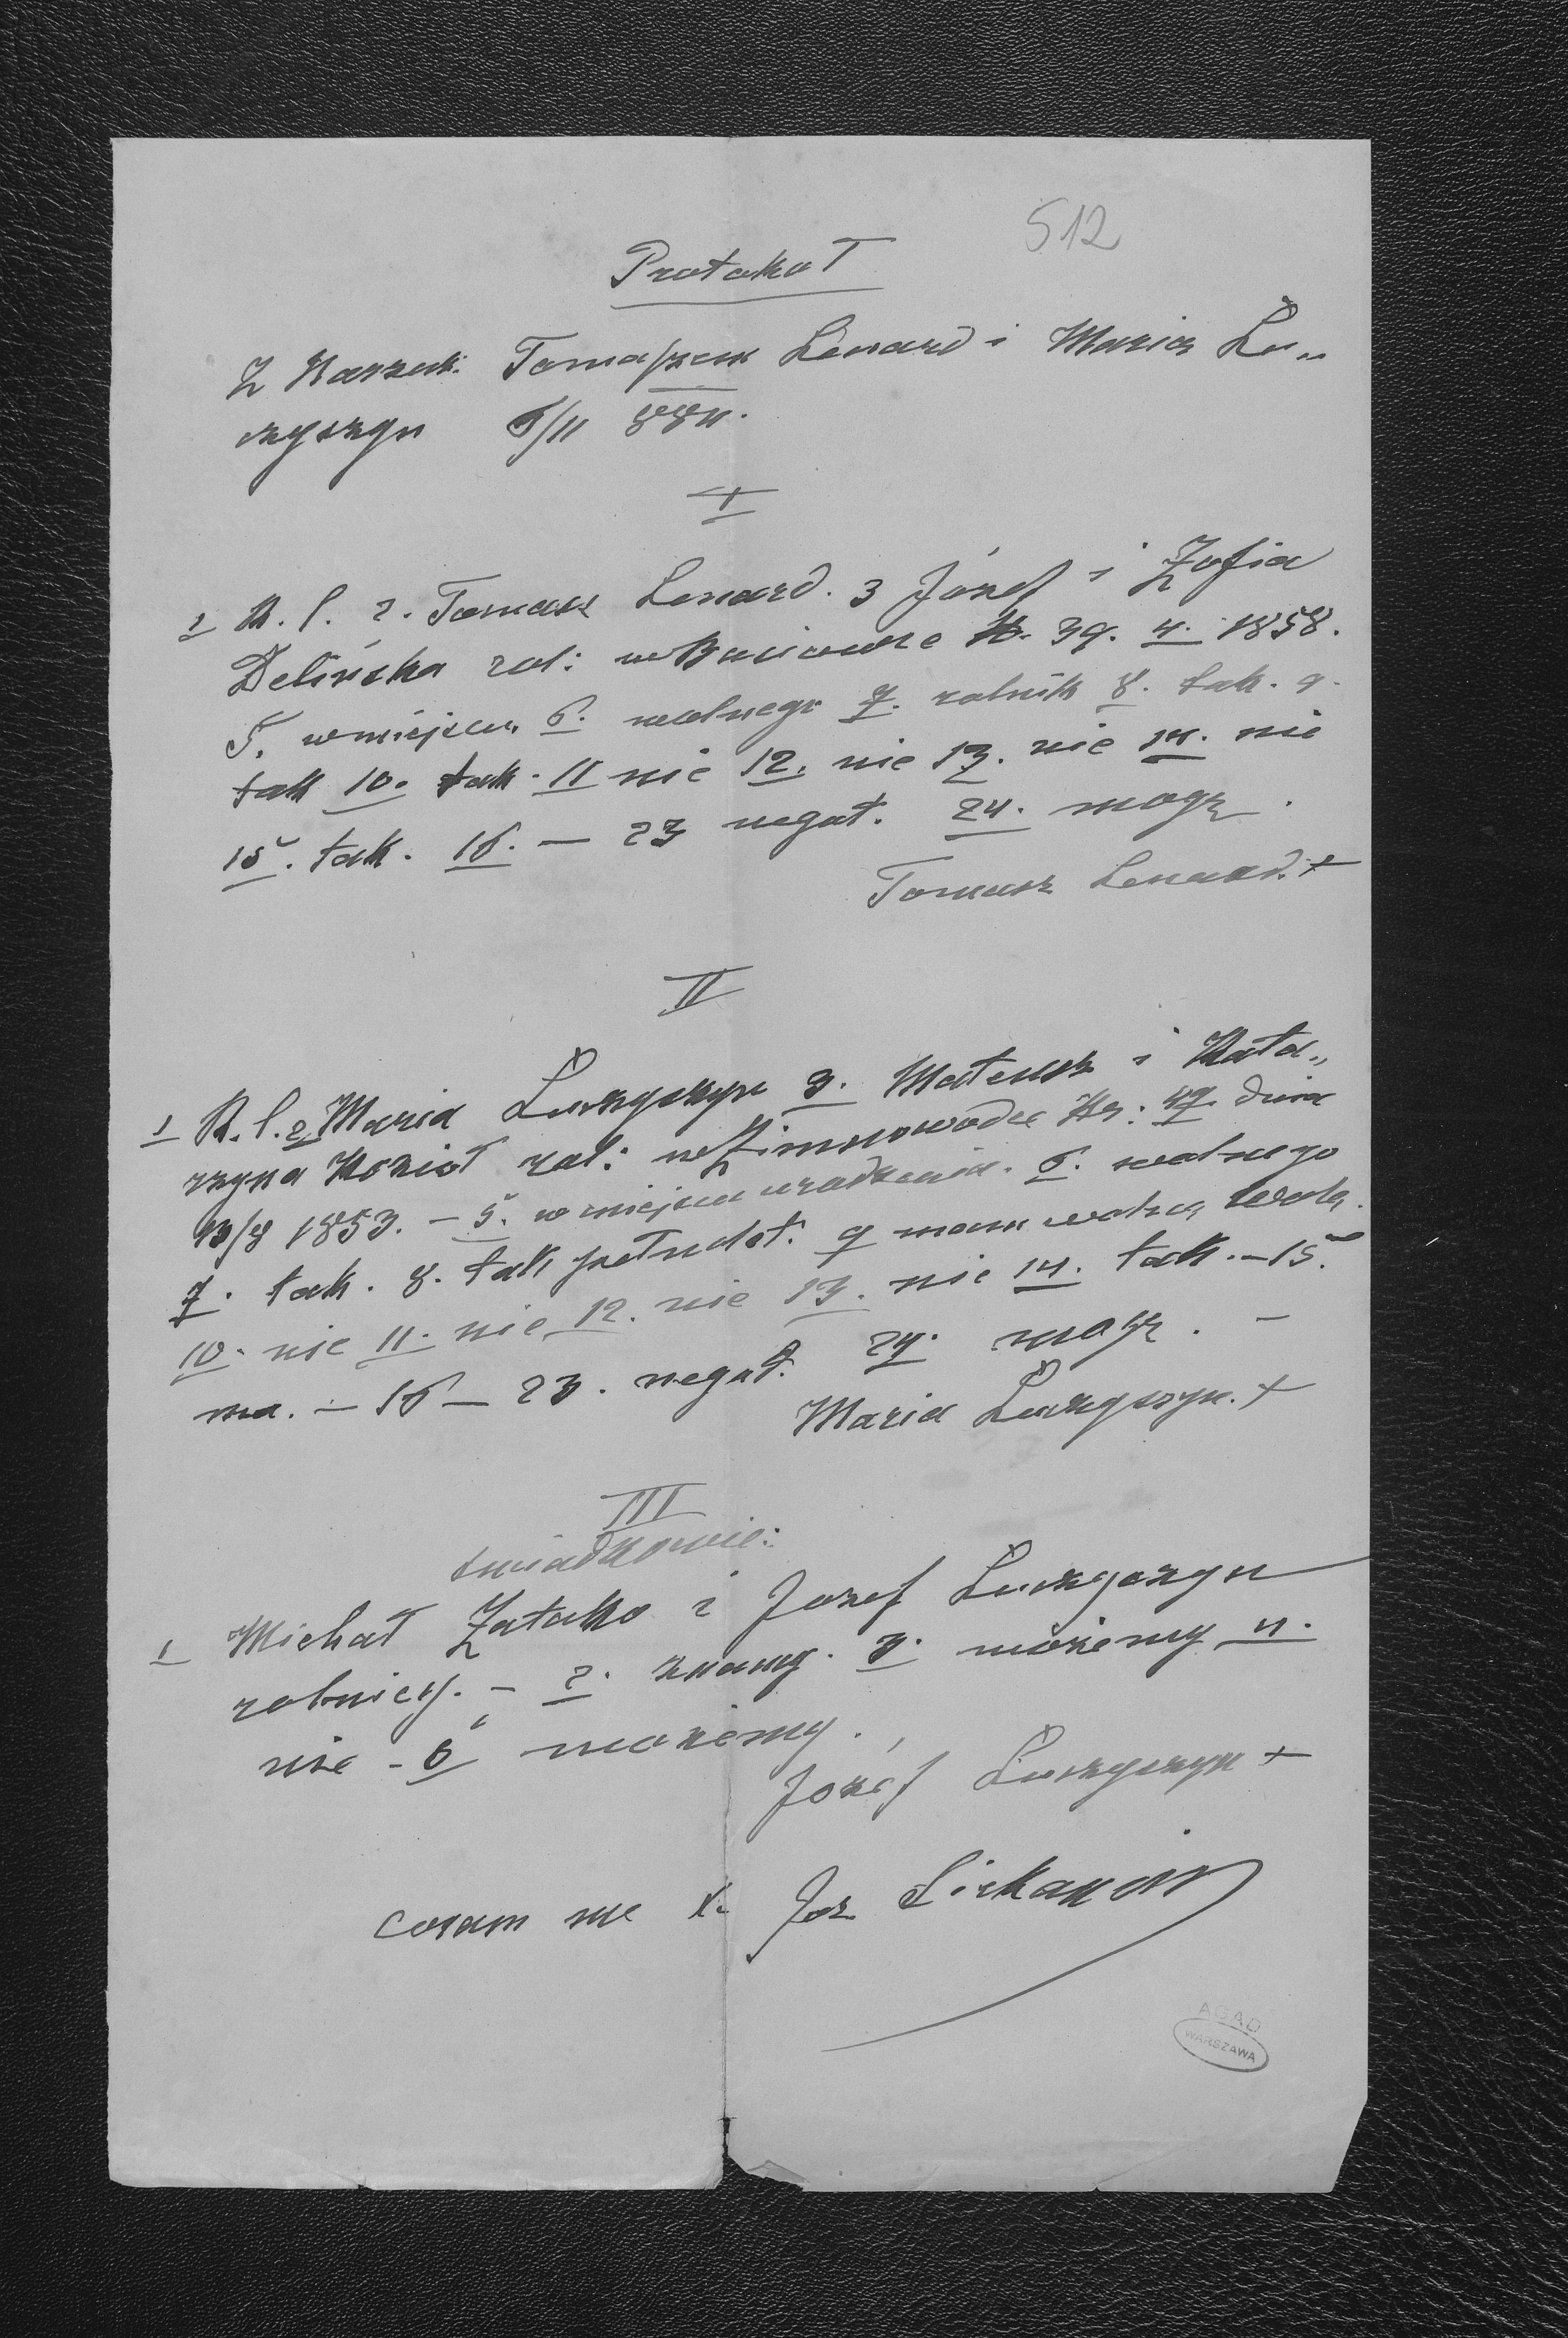 512
Protokoł
Z Narzecz. Tomaszem Lenard i Marią Łu„
szyszyn 5/11 884.
I
1 R. l. 2. Tomasz Lenard. 3 Józef i Zofia
Delińska rol: w 39. 4. 1858.
5. w miejscu 6. wolnego 7. rolnik 8. tak. 9.
tak 10. tak. 11 nie 12. nie 13. nie 14. nie
15. tak. 16. – 23 negat. 24. mogę.
Tomasz Lenard. +
II
1 R. l. 2 Maria Łuszyszyn 3. Mateusz i Kata„
rzyna Kozioł rol: w Zimnowodce Nr: 49. dnia
13/8 1853. – 5. w miejscu urodzenia. 6. wolnego
7. tak. 8. tak pełnolet: 9 mam wolną wolę.
10. nie 11. nie 12. nie 13. nie 14. tak. – 15.
ma. – 16 – 23. negat. 24. mogę. –
Maria Łuszyszyn. +
III
świadkowie:
1 Michał Załasko i Jozef Łuszyszyn
rolnicy. – 2. znamy. 3. możemy 4.
nie – 5 możemy.
Józef Łuszyszyn +
coram me X. Joz
AGAD
WARSZAWA